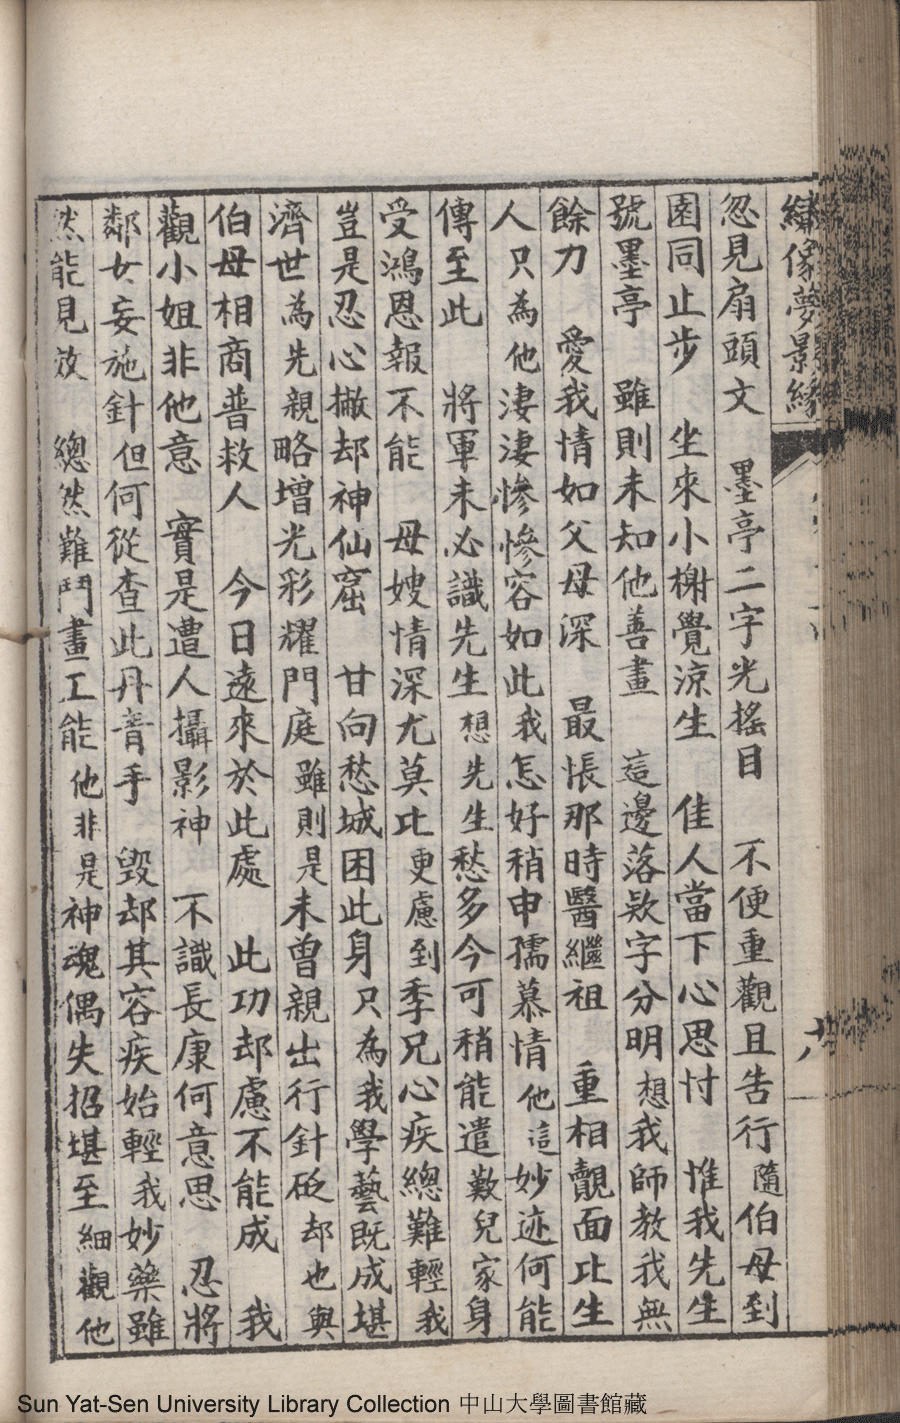 繡像夢景緣
忽見扇頭文　墨亭二字光搖目　不便重觀且告行隨伯母到
園同止步　坐來小榭覺涼生　佳人當下心思忖　惟我先生
號墨亭　雖則未知他善畫　這邊落欵字分明想我師教我無
餘力　愛我情如父母深　最悵那時醫繼祖　重相覿面比生
人只為他淒淒慘慘容如此我怎好稍申孺慕情他這妙迹何能
傳至此　將軍未必識先生想先生愁多今可稍能遣歎兒家身
受鴻恩報不能　母嫂情深尤莫比更慮到季兄心疾總難輕我
豈是忍心撇却神仙窟　甘向愁城困此身只為我學藝既成堪
濟世為先親略增光彩耀門庭雖則是未曾親出行針砭却也與
伯母相商普救人　今日遠來於此處　此功却慮不能成　我
觀小姐非他意　實是遭人攝影神　不識長康何意思　忍將
鄰女妄施針但何從查此丹青手　毀却其容疾始輕我妙藥雖
然能見效　總然難鬥畫工能他非是神魂偶失招堪至細觀他
Sun Yat-Sen University Library Collection 中山大學圖書館藏